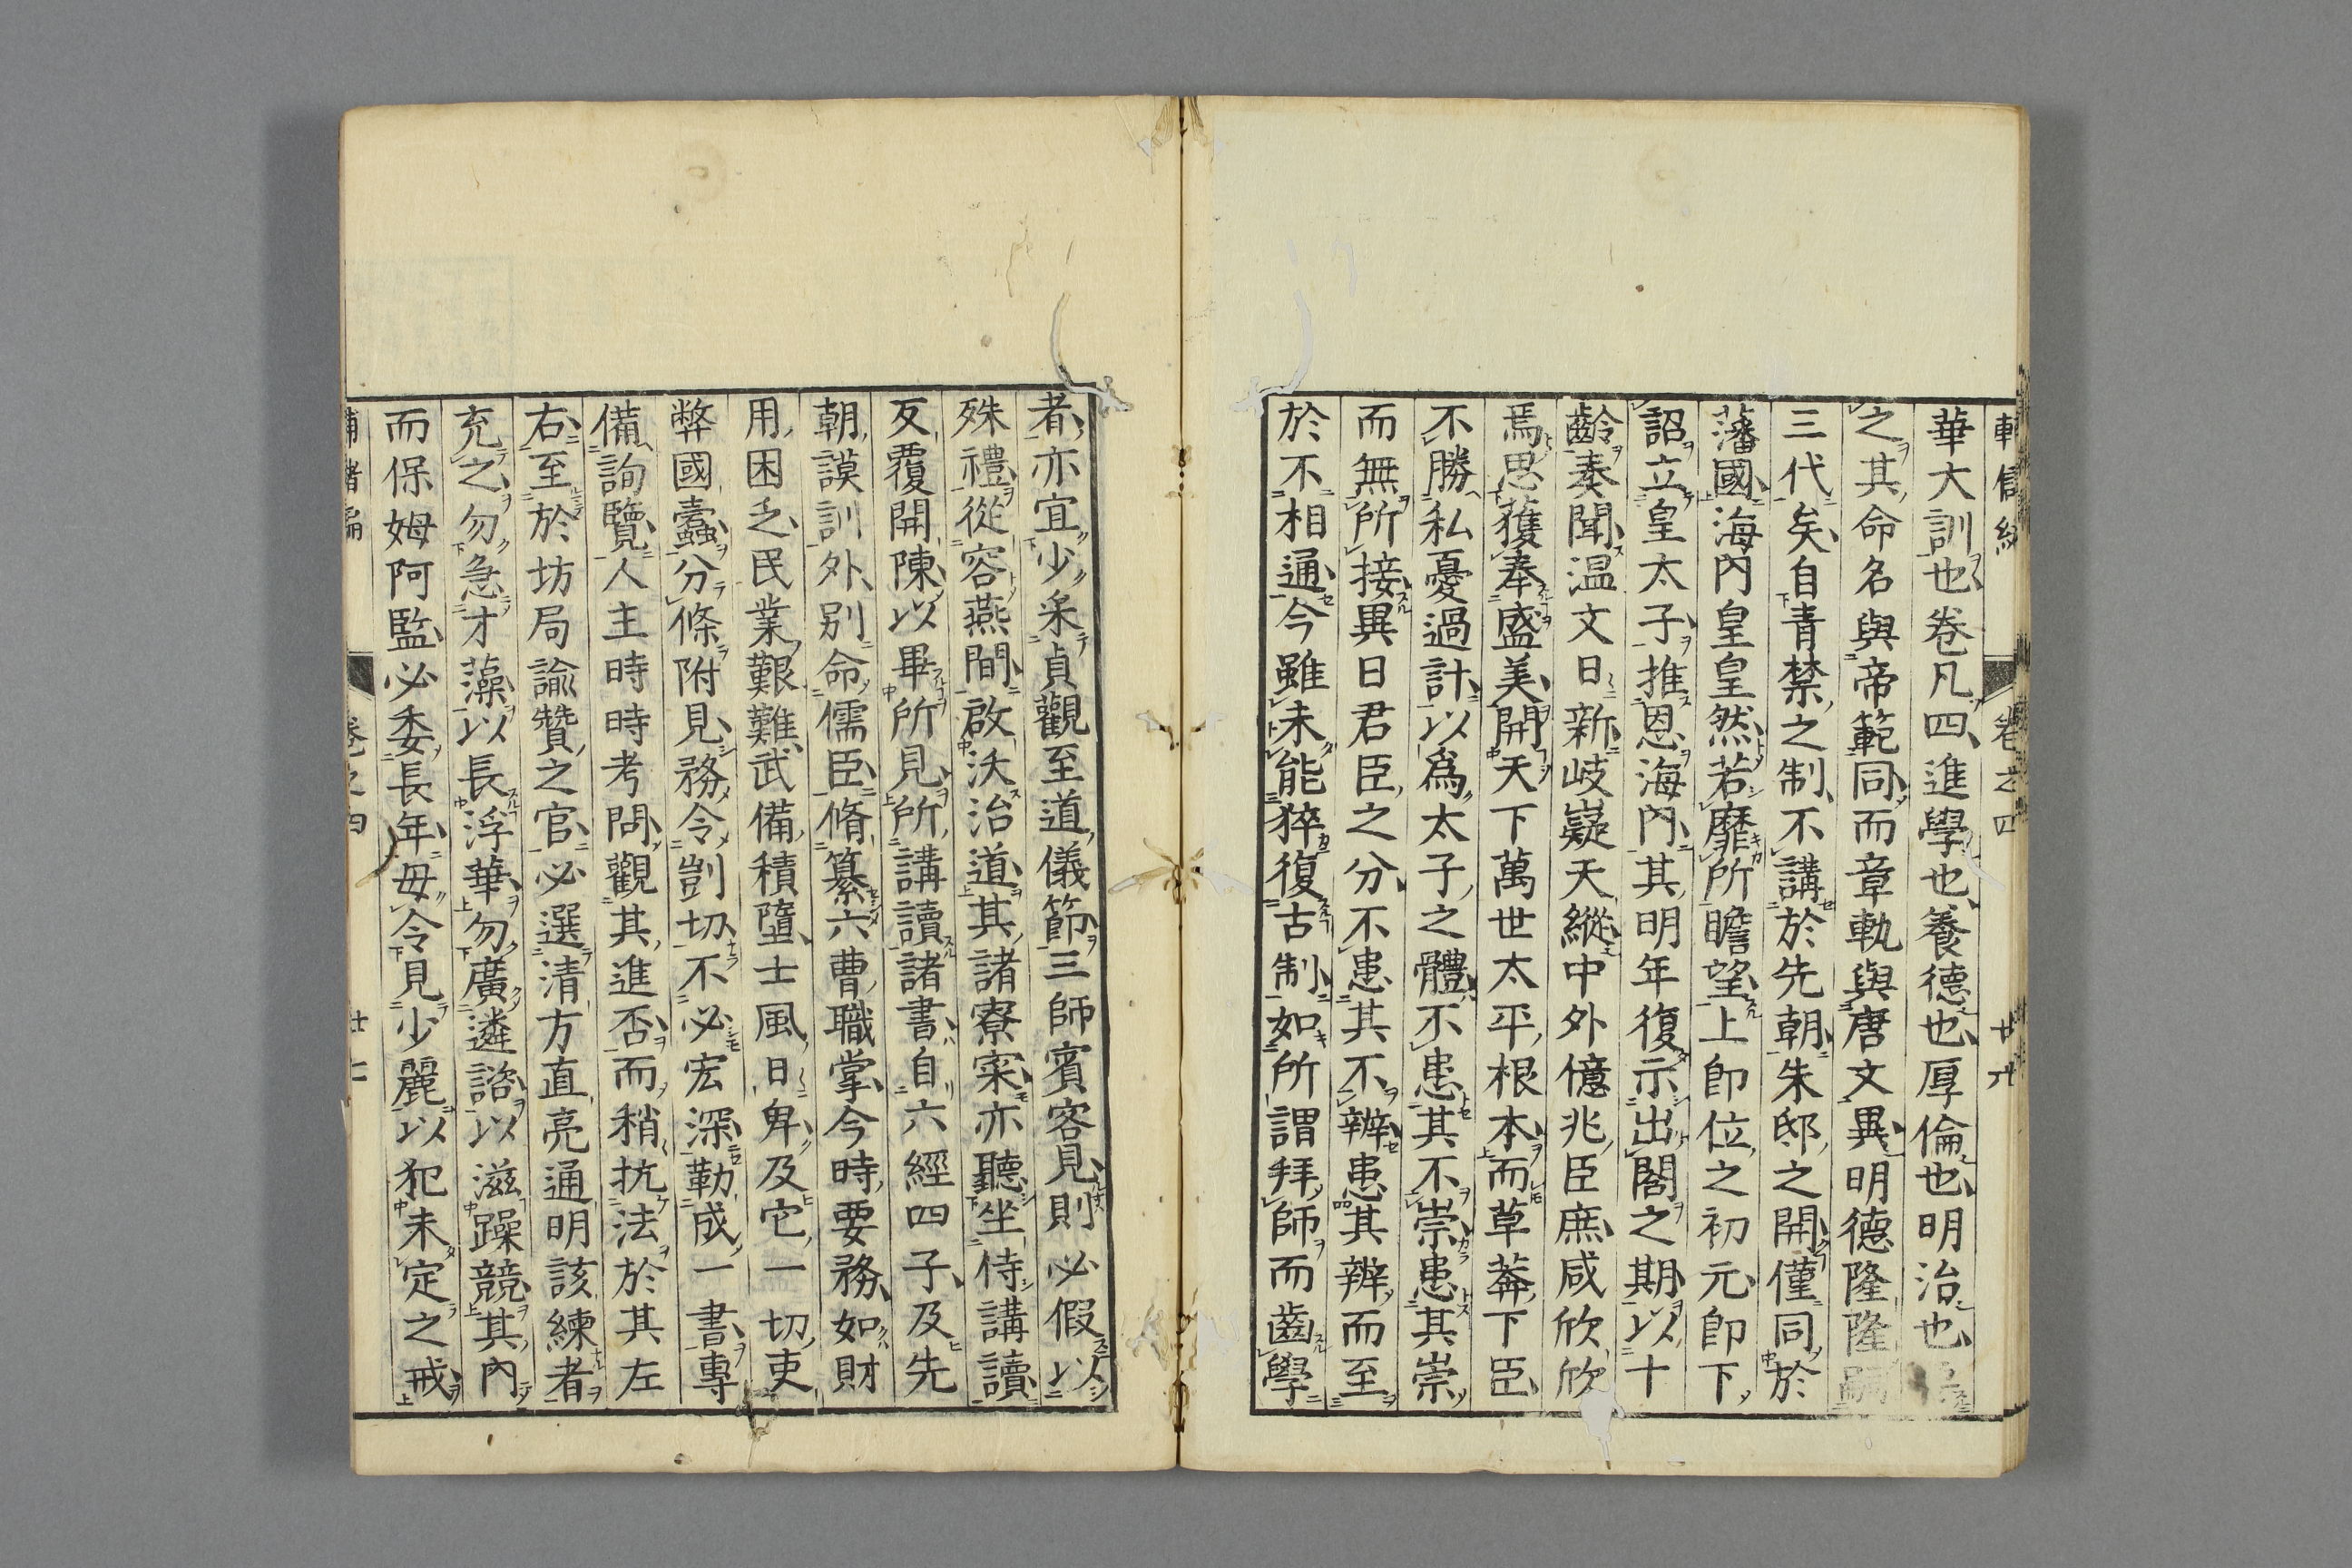 卷之四
華大訓也卷凡四進學也養德也厚倫也明治也
之其命名與帝範同而章軌與唐文異明德隆隆嗣
三代矣自青禁之制不講於先朝朱邸之開僅同於
藩國海內皇皇然若靡所瞻望上卽位之初元卽下
詔立皇太子推恩海內其明年復示出閣之期以十
齡奏聞温文日新岐嶷天縱中外億兆臣庶咸欣欣
焉思獲奉盛美開天下萬世太平根本而草莽下臣
不勝私憂過計以爲太子之體不患其不崇患其崇
而無所接異日君臣之分不患其不辨患其辨而至
於不相通今雖未能猝復古制如所謂拜師而齒學
者亦宜少采貞觀至道儀節三師賓客見則必假以
殊禮從容燕間啟沃治道其諸寮寀亦聽坐侍講讀
反覆開陳以畢所見所講讀諸書自六經四子及先
朝謨訓外别命儒臣脩纂六曹職掌今時要務如財
用困乏民業艱難武備積墮士風日卑及它一切吏
弊國蠹分條附見務令剴切不必宏深勒成一書專
備詢覽人主時時考問觀其進否而稍抗法於其左
右至於坊局諭贊之官必選清方直亮通明該練者
充之勿急才藻以長浮華勿廣遴諮以滋躁競其內
而保姆阿監必委長年毋令見少麗以犯未定之戒
卷之四